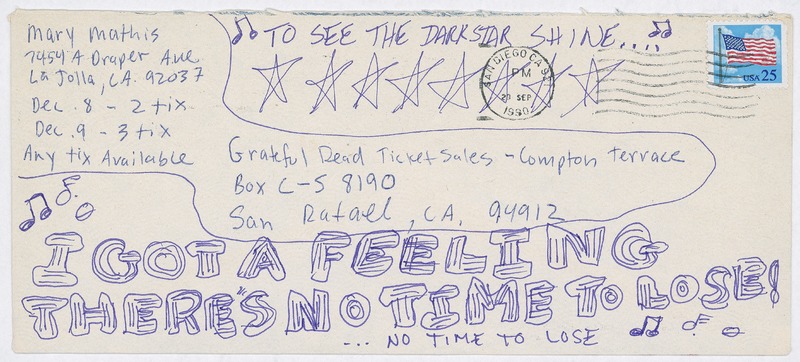 Mary Mathis
7454 A Draper Ave
La Jolla, CA. 92037
Dec. 8 - 2 tix
Dec. 9 - 3 tix
Any tix Available
TO SEE THE DARKSTAR SHINE....
SAN DIEGO CA
PM
1990
USA 25
Grateful Dead Ticket Sales - Compton Terrace
Box C-S 8190
San Rafael, CA. 94912
I GOT A FEELING
THERE'S NO TIME TO LOSE!
... NO TIME TO LOSE